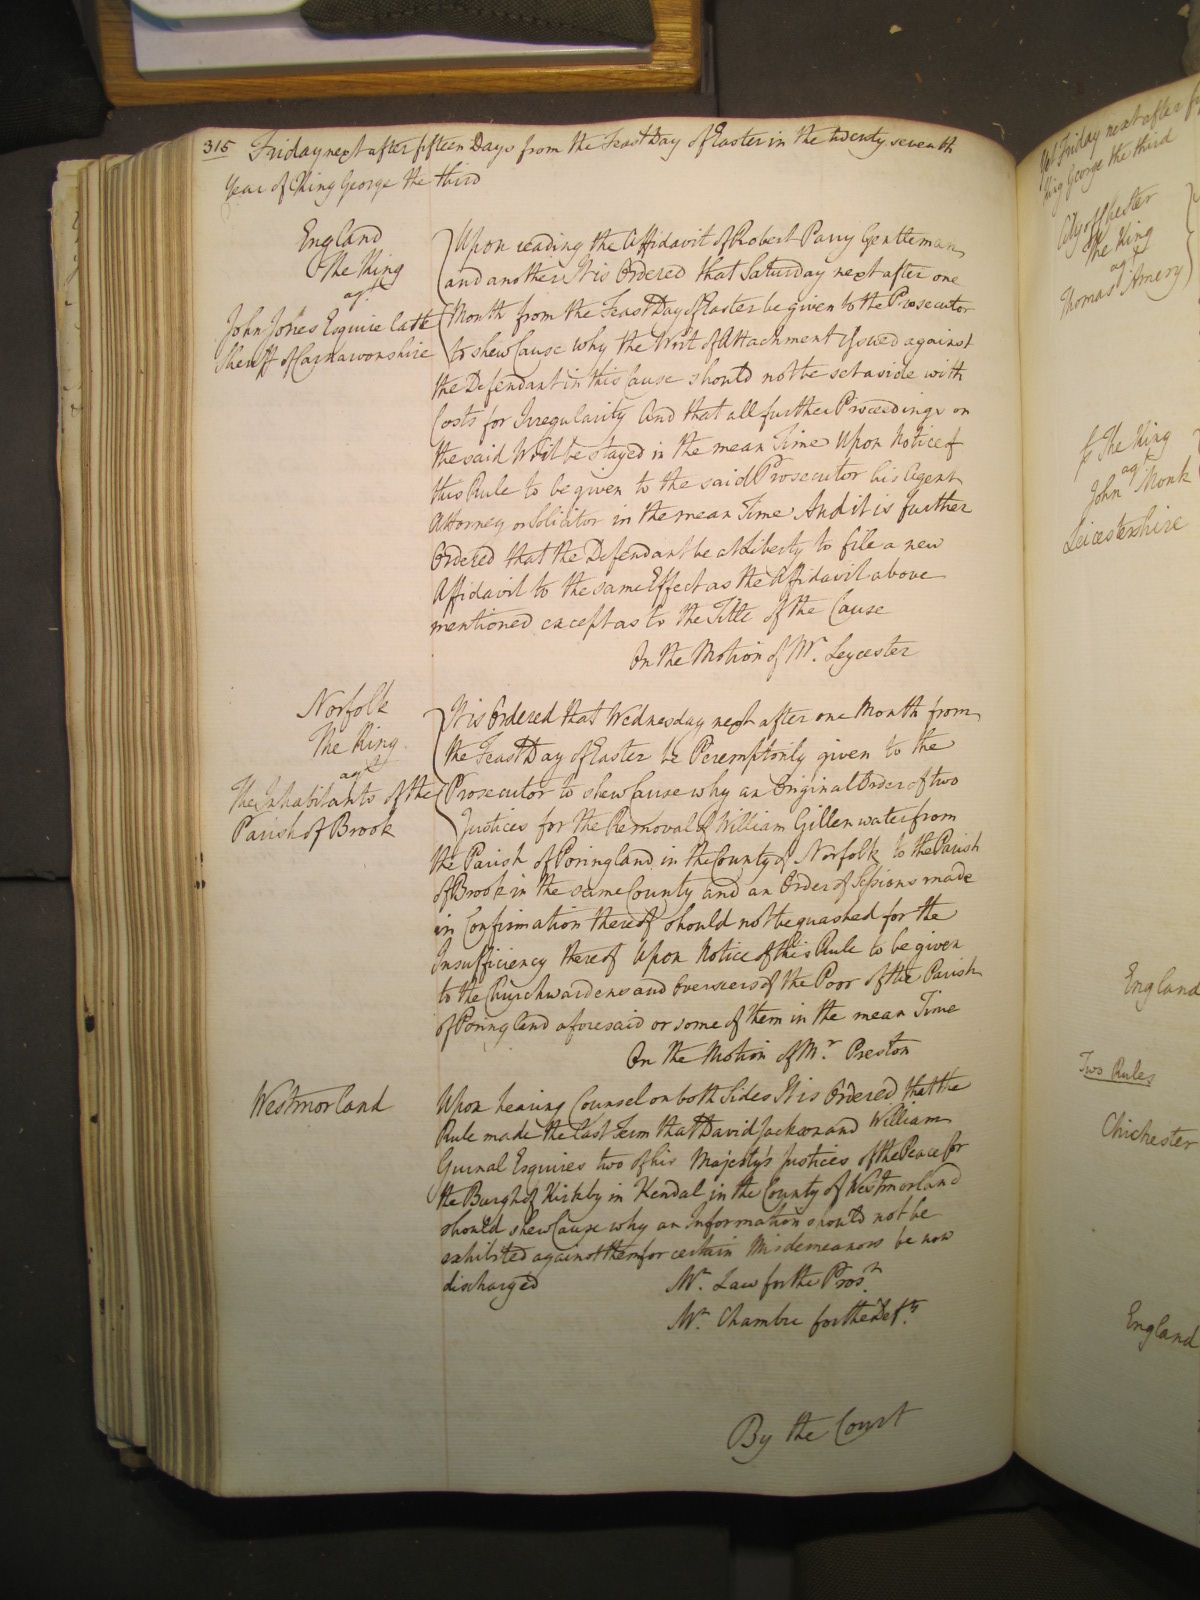 315 Friday next after fifteen Days from the Feast Day of Easter in the twenty seventh
Year of King George the third
England
The King
agt
John Jones Esquire late
Sheriff of Carnarvonshire
Upon reading the Affidavit of Robert Parry Gentleman
and another It is Ordered that Saturday next after one
Month from the Feast Day of Easter be given to the Prosecutor
to shew Cause why the Writ of Attachment issued against
the Defendant in this Cause should not be set aside with
Costs for Irregularity And that all further Proceedings on
the said Writ be stayed in the mean Time Upon Notice of
this Rule to be given to the said Prosecutor his Agent
Attorney or Solicitor in the mean Time And it is further
Ordered that the Defendant be at Liberty to file a new
Affidavit to the same Effect as the Affidavit above
mentioned except as to the Title of the Cause
On the Motion of Mr. Leycester
Norfolk
The King
agt
The Inhabitants of the
Parish of Brook
It is Ordered that Wednesday next after one Month from
the Feast Day of Easter be Peremptorily given to the
Prosecutor to shew Cause why an Original Order of two
Justices for the Removal of William Gillenwater from
the Parish of Poringland in the County of Norfolk to the Parish
of Brook in the same County and an Order of Sessions made
in Confirmation thereof should not be quashed for the
Insufficiency thereof Upon Notice of this Rule to be given
to the Churchwardens and Overseers of the Poor of the Parish
of Poringland aforesaid or some of them in the mean Time
On the Motion of Mr. Preston
Westmorland
Upon hearing Counsel on both Sides It is Ordered that the
Rule made the last Term that David Jackson and William
Gurnal Esquires two of his Majesty's Justices of the Peace for
the Burgh of Kirkby in Kendal in the County of Westmorland
should shew Cause why an Information should not be
exhibited against them for certain Misdemeanors be now
discharged
Mr. Law for the Prosr.
Mr. Chambre for the Defts.
By the Court
Friday next after
King George the third
City of Chester
The King
agt
Thomas Amery
The King
agt
John Monk
Leicestershire
England
Two Rules
Chichester
England